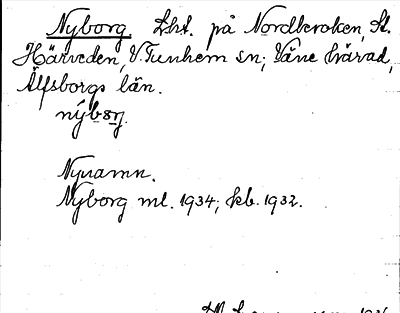 Nyborg Lht. på Nordkroken, St.
Härveden, V. Tunhem sn; Väne härad,
Älfsborgs län.
Nynamn.
Nyborg ml. 1934; kb. 1932.